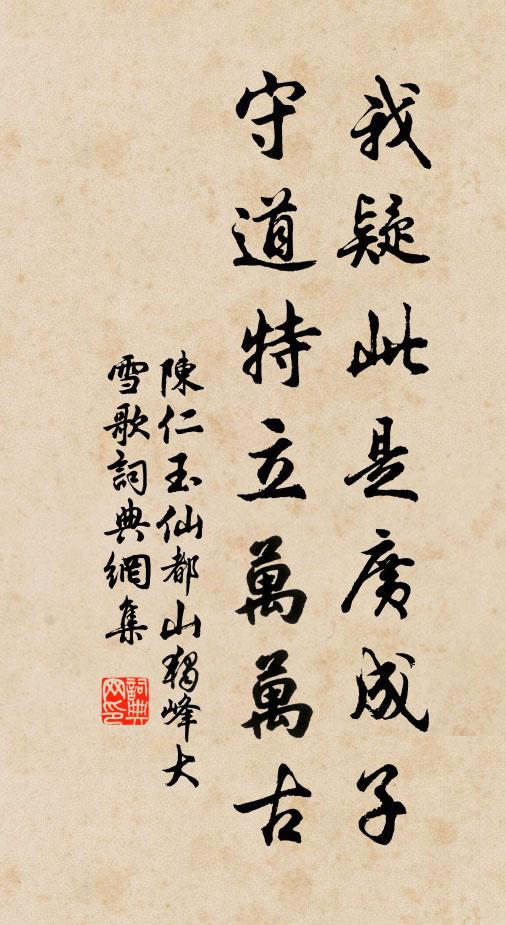 我疑此是廣成子
守道特立萬萬古
陳仁玉仙都山獨峰大
雪歌詞典網集
詞典
网印